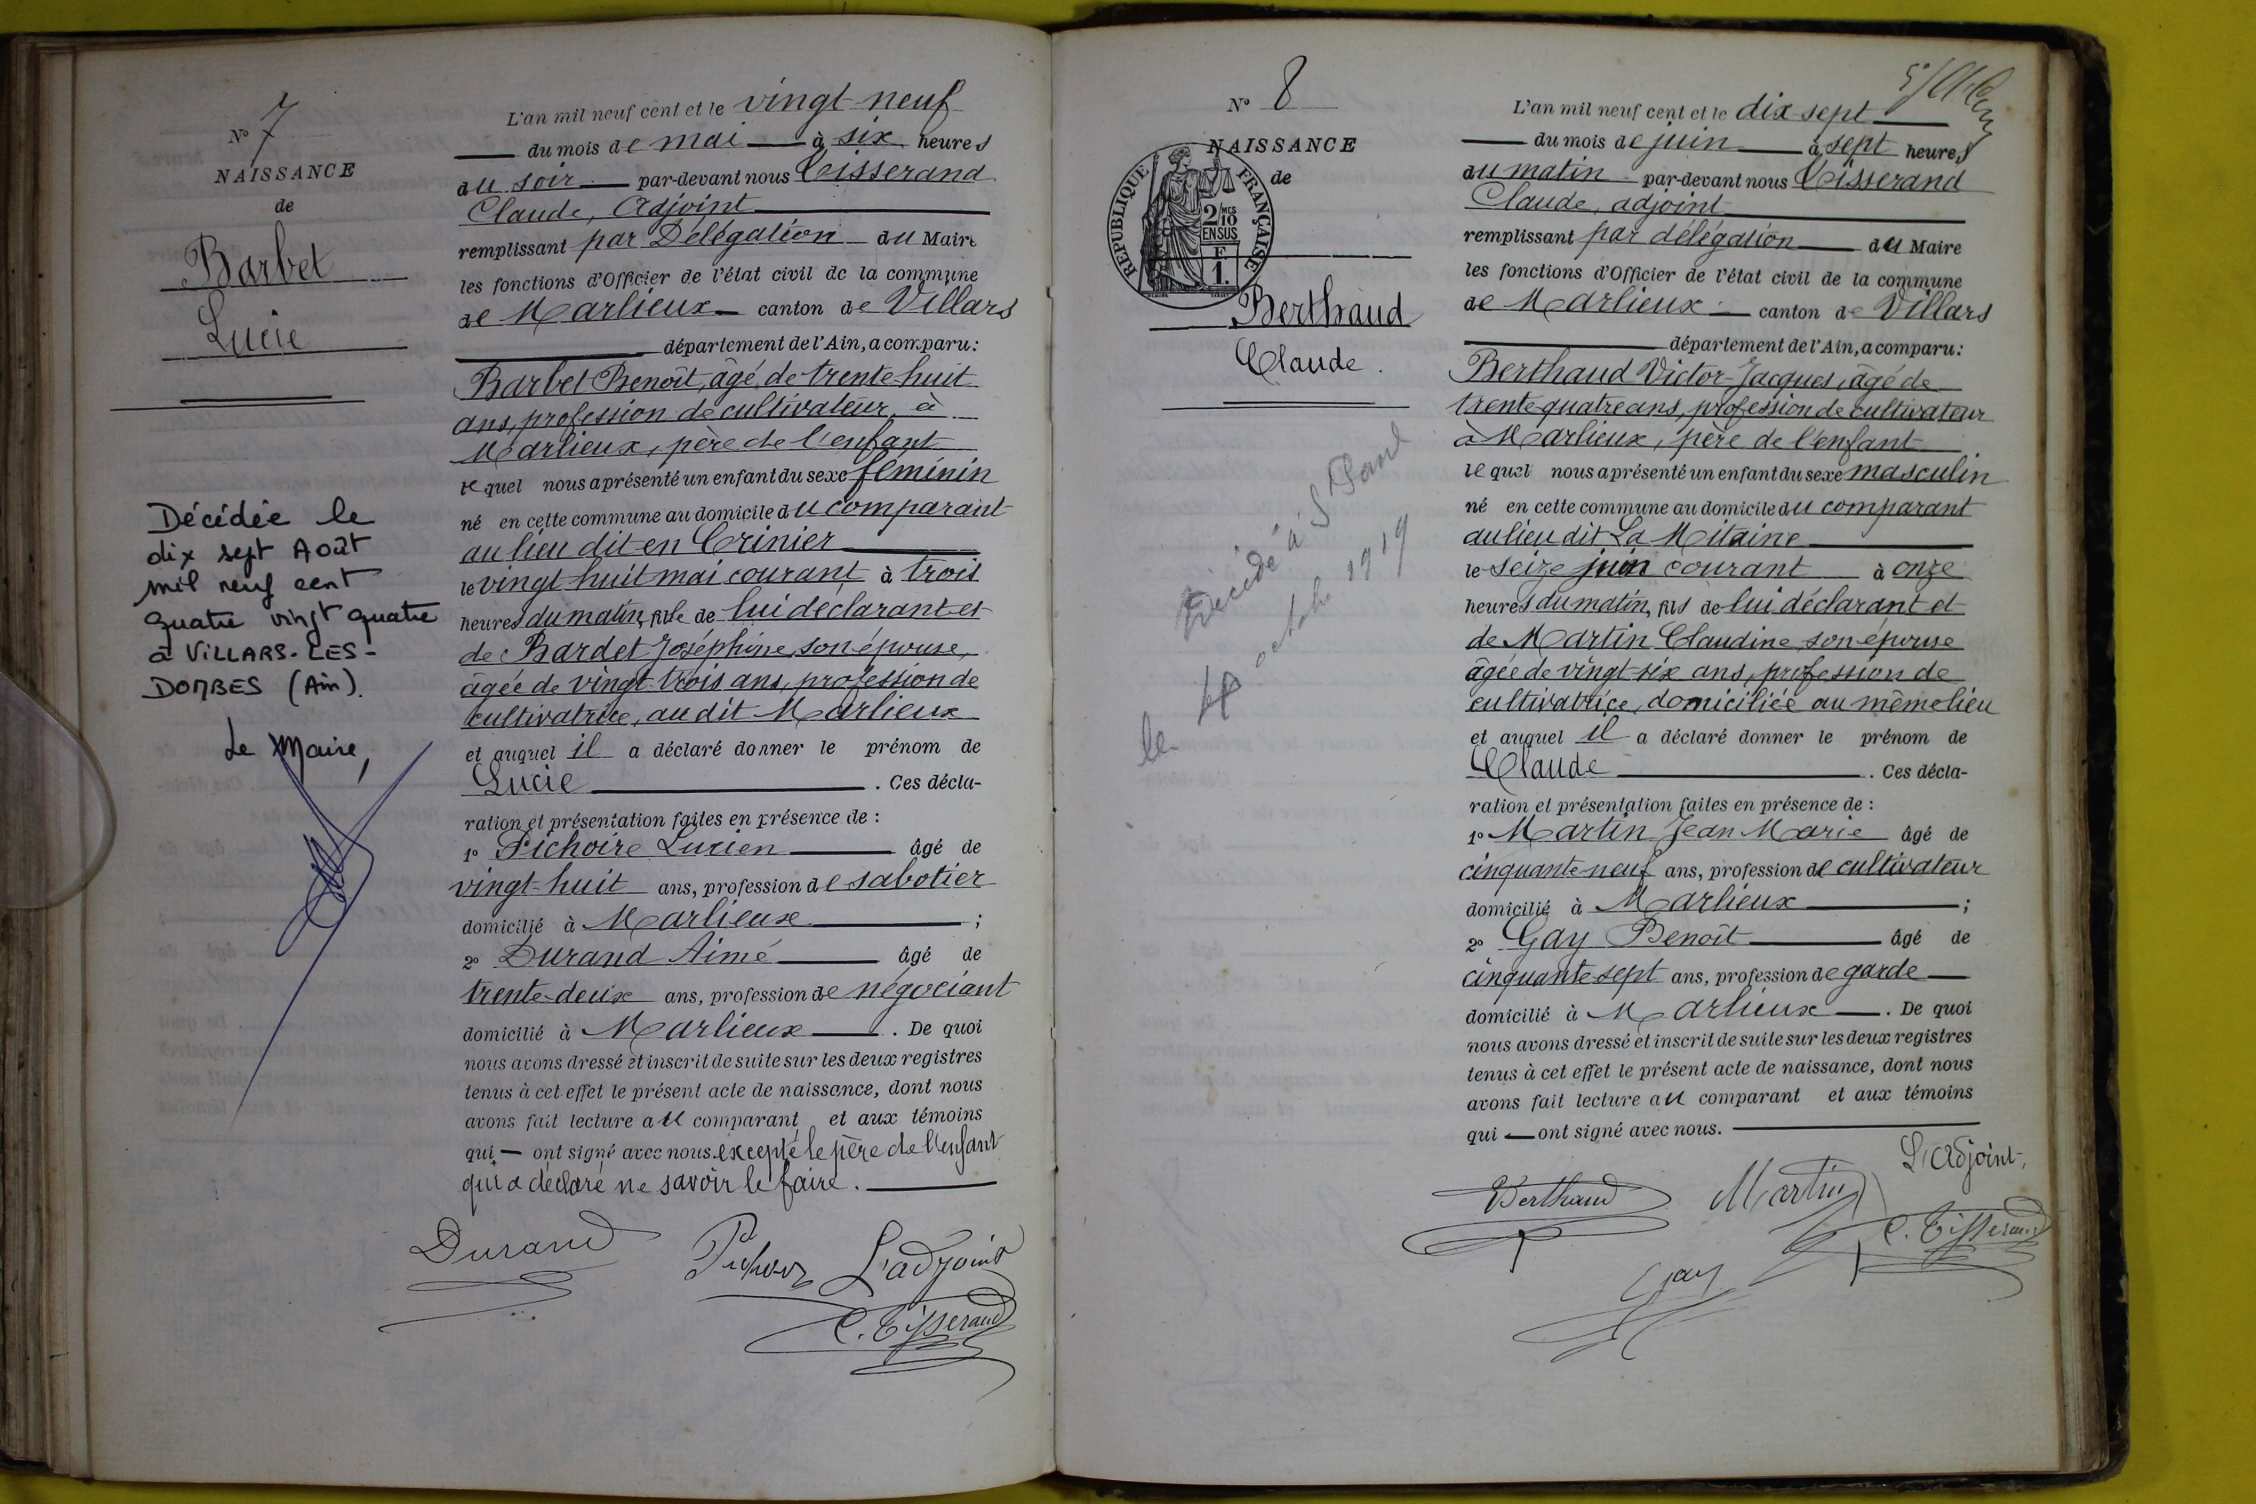 N° 7
NAISSANCE
de
Barbet
Lucie
Décédée le
dix sept Août
mil neuf cent
quatre vingt quatre
à VILLARS-LES-
DOMBES (Ain).
Le Maire,
L'an mil neuf cent et le vingt-neuf
du mois de mai à six heures
du soir par-devant nous Tisserand
Claude, Adjoint
remplissant par Délégation du Maire
les fonctions d'Officier de l'état civil de la commune
de Marlieux canton de Villars
département de l'Ain, a comparu:
Barbet Benoît, âgé de trente huit
ans, profession de cultivateur, à
Marlieux, père de l'enfant
lequel nous a présenté un enfant du sexe féminin
né en cette commune au domicile du comparant
au lieu dit en Crinier
le vingt huit mai courant à trois
heures du matin, fille de lui déclarant et
de Bardet Joséphine, son épouse,
âgée de vingt-trois ans, profession de
cultivatrice, au dit Marlieux
et auquel il a déclaré donner le prénom de
Lucie . Ces décla-
ration et présentation faites en présence de :
1° Pichoire Lucien âgé de
vingt-huit ans, profession de sabotier
domicilié à Marlieux ;
2° Durand Aimé âgé de
trente-deux ans, profession de négociant
domicilié à Marlieux . De quoi
nous avons dressé et inscrit de suite sur les deux registres
tenus à cet effet le présent acte de naissance, dont nous
avons fait lecture au comparant et aux témoins
qui ont signé avec nous. excepté le père de l'enfant
qui a déclaré ne savoir le faire.
Durand L'adjoint
C. Tisserand
N° 8
NAISSANCE
de
REPUBLIQUE FRANÇAISE
2/10 MES
EN SUS
1 F.
Berthaud
Claude.
Décédé à
le octobre 1919
L'an mil neuf cent et le dix-sept
du mois de juin à sept heures
du matin par-devant nous Tisserand
Claude, adjoint
remplissant par délégation du Maire
les fonctions d'Officier de l'état civil de la commune
de Marlieux canton de Villars
département de l'Ain, a comparu:
Berthaud Victor-Jacques, âgé de
trente-quatre ans, profession de cultivateur
à Marlieux, père de l'enfant
lequel nous a présenté un enfant du sexe masculin
né en cette commune au domicile du comparant
au lieu dit La Mitaine
le seize juin courant à onze
heures du matin, fils de lui déclarant et
de Martin Claudine, son épouse
âgée de vingt-six ans, profession de
cultivatrice, domiciliée au même lieu
et auquel il a déclaré donner le prénom de
Claude . Ces décla-
ration et présentation faites en présence de :
1° Martin Jean Marie âgé de
cinquante-neuf ans, profession de cultivateur
domicilié à Marlieux ;
2° Gay Benoît âgé de
cinquante sept ans, profession de garde
domicilié à Marlieux . De quoi
nous avons dressé et inscrit de suite sur les deux registres
tenus à cet effet le présent acte de naissance, dont nous
avons fait lecture au comparant et aux témoins
qui ont signé avec nous.
L'adjoint,
Berthaud Martin C. Tisserand
Gay